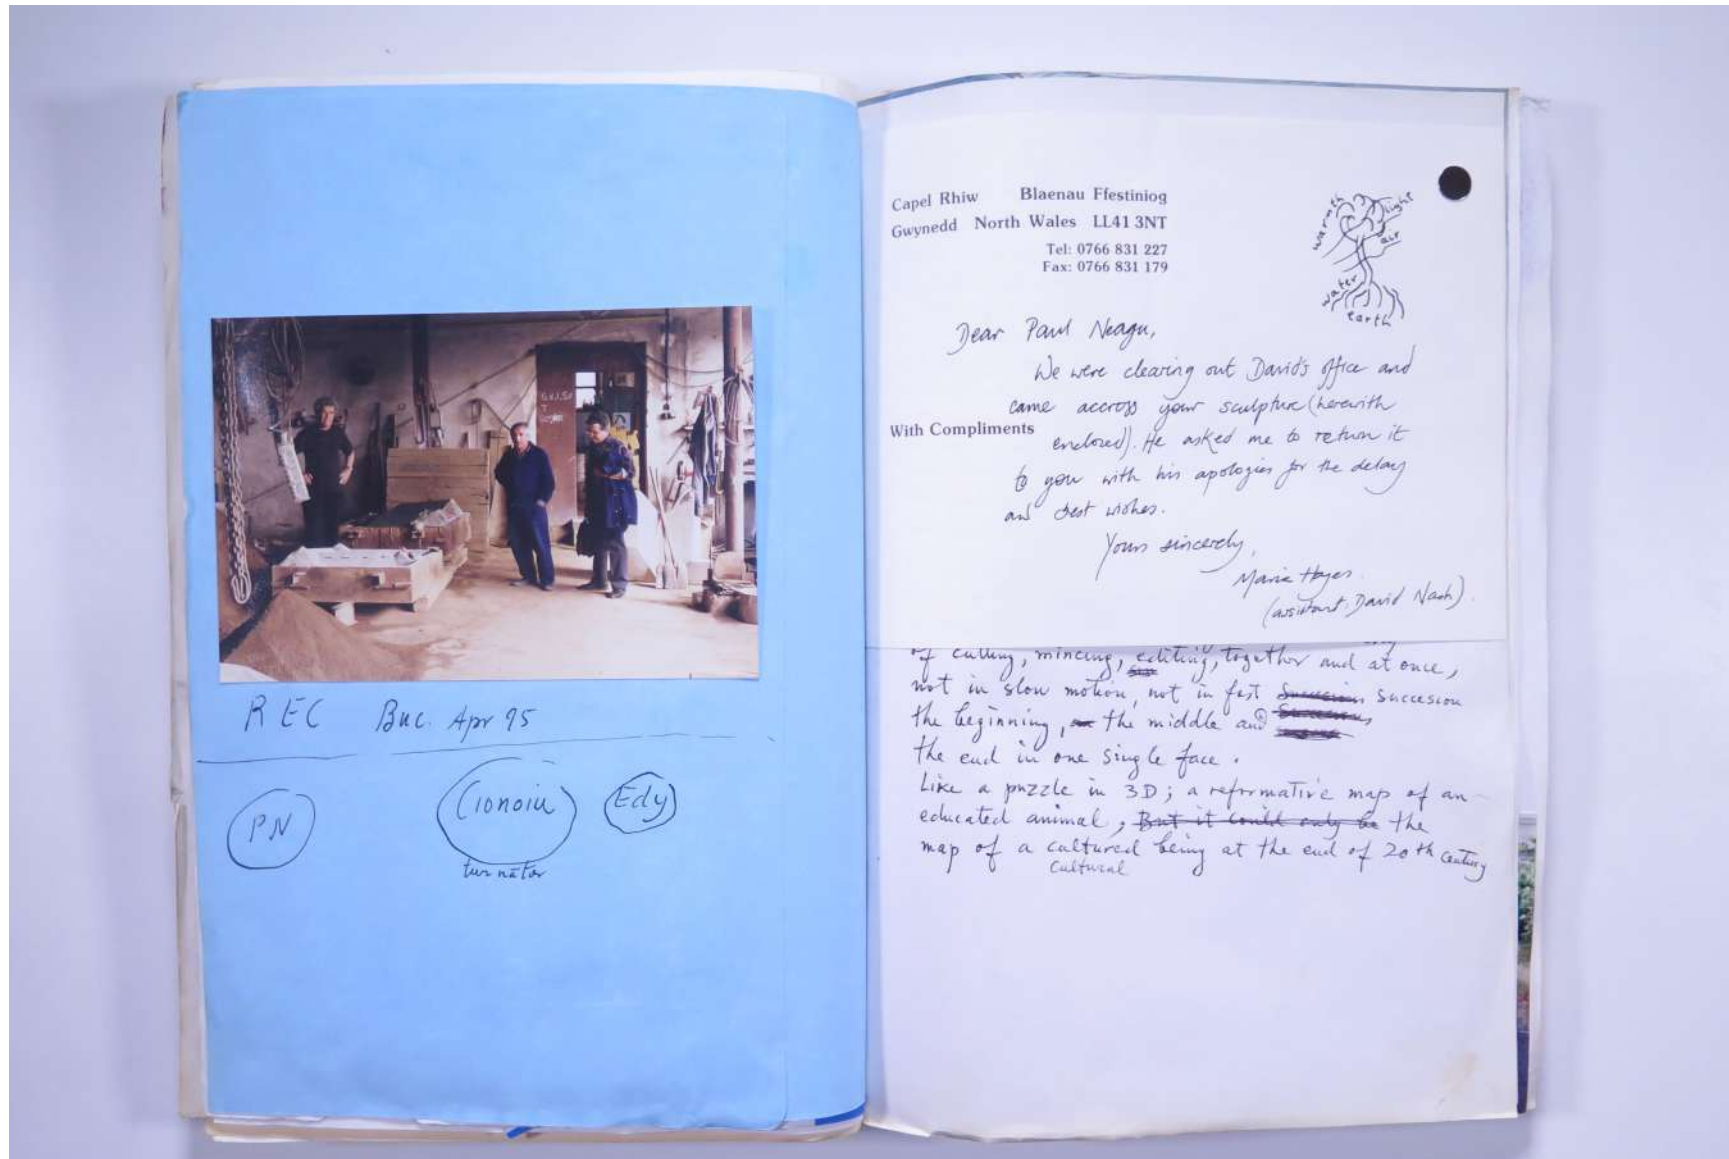 REC Buc. Apr 95
PN
Cionoiu
Edy
turnător
Capel Rhiw Blaenau Ffestiniog
Gwynedd North Wales LL41 3NT
Tel: 0766 831 227
Fax: 0766 831 179
warmth
light
air
water
earth
Dear Paul Neagu,
We were clearing out David's office and
came accross your sculpture (herewith
With Compliments
enclosed). He asked me to return it
to you with his apologies for the delay
and best wishes.
Yours sincerely,
Marie Hayes.
(assistant: David Nash).
of cutting, mincing, editing, together and at once,
not in slow motion, not in fast succesion
the beginning, the middle and
the end in one single face.
Like a puzzle in 3D; a reformative map of an
educated animal, But it could only be the
map of a cultured being at the end of 20th century
cultural